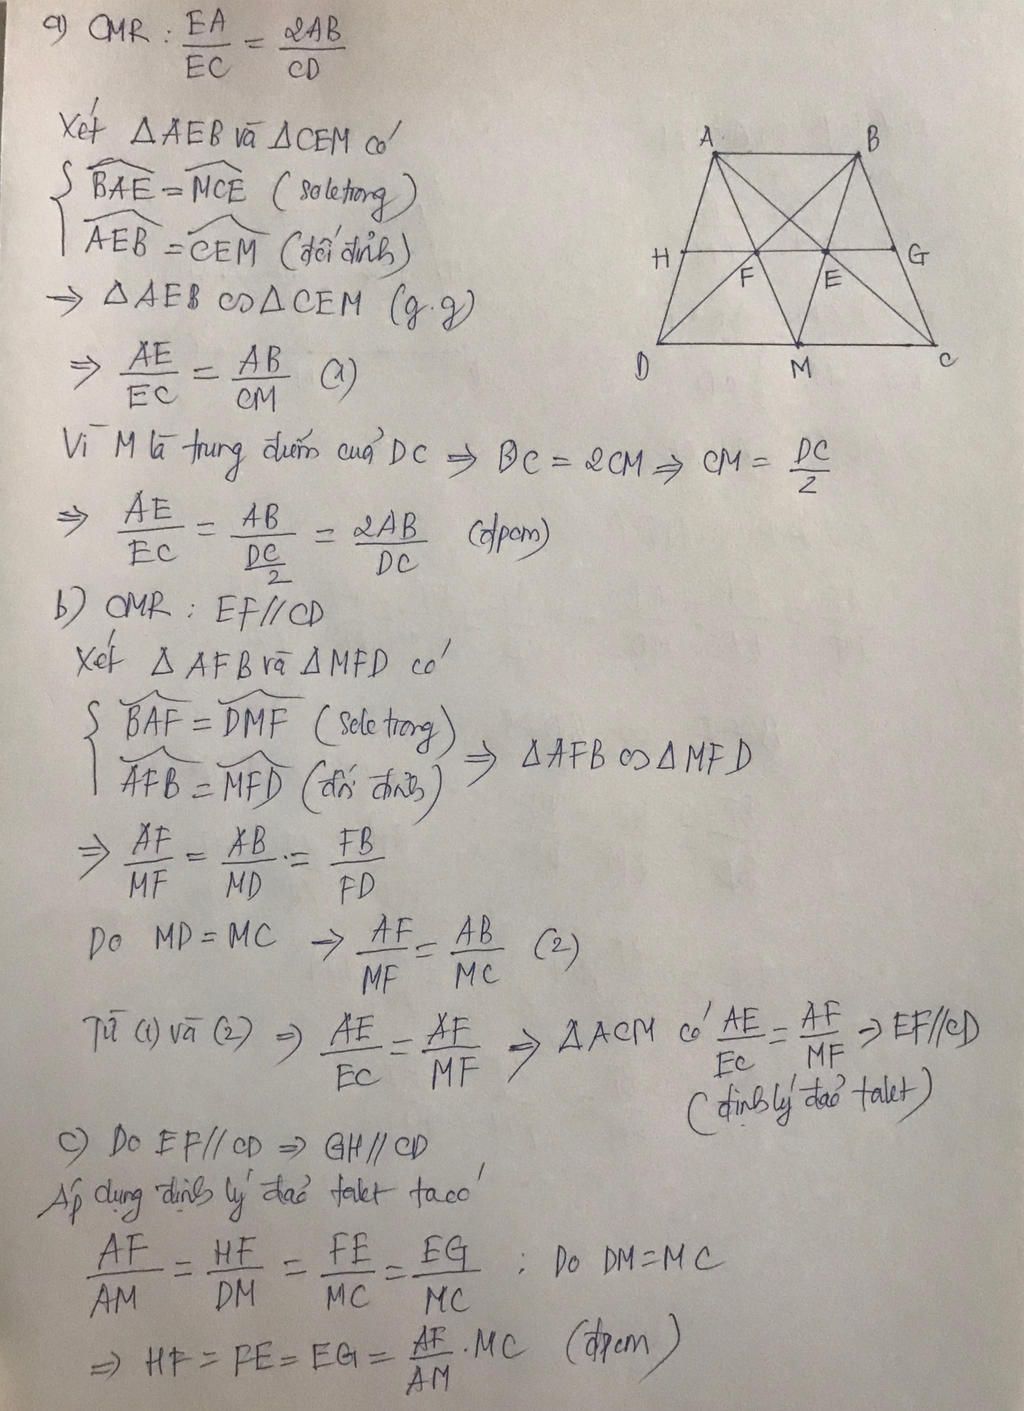 a) CMR : EA/EC = 2AB/CD
Xét ΔAEB và ΔCEM có
A B
{ BAE^ = MCE^ (so le trong)
AEB^ = CEM^ (đối đỉnh)
H F E G
⇒ ΔAEB ∽ ΔCEM (g.g)
D M C
⇒ AE/EC = AB/CM (1)
Vì M là trung điểm của DC ⇒ DC = 2CM ⇒ CM = DC/2
⇒ AE/EC = AB/(DC/2) = 2AB/DC (đpcm)
b) CMR : EF // CD
Xét Δ AFB và Δ MFD có
{ BAF^ = DMF^ (sole trong)
AFB^ = MFD^ (đối đỉnh) ⇒ ΔAFB ∽ Δ MFD
⇒ AF/MF = AB/MD = FB/FD
Do MD = MC ⇒ AF/MF = AB/MC (2)
Từ (1) và (2) ⇒ AE/EC = AF/MF ⇒ ΔACM có AE/EC = AF/MF ⇒ EF//CD
(định lý đảo talet)
c) Do EF // CD ⇒ GH // CD
Áp dụng định lý đảo talet ta có
AF/AM = HF/DM = FE/MC = EG/MC ; Do DM = MC
⇒ HF = FE = EG = AF/AM . MC (đpcm)